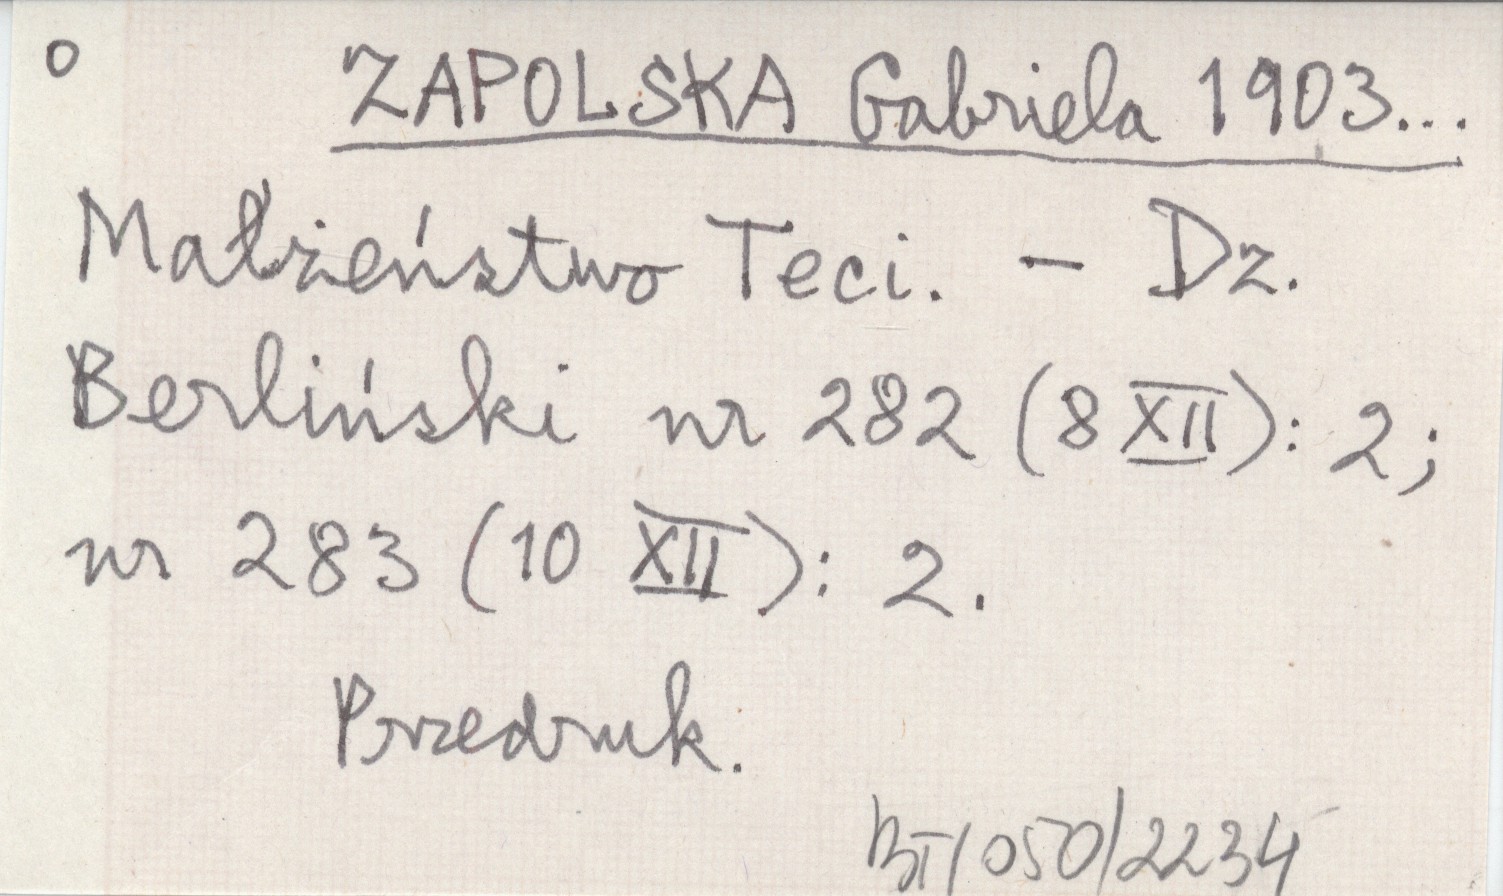 o ZAPOLSKA Gabriela 1903...
Małżeństwo Teci. - Dz.
Berliński nr 282 (8 XII): 2;
nr 283 (10 XII): 2.
Przedruk.
BT/050/2234